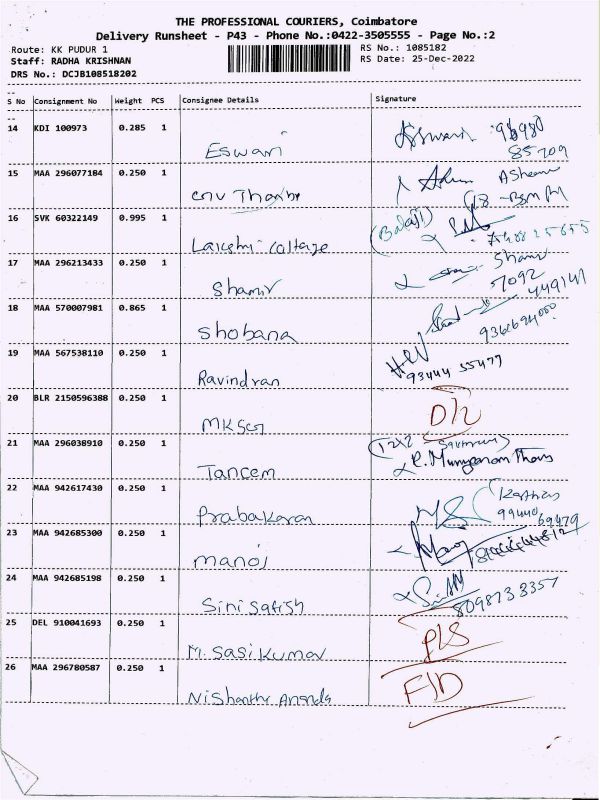 THE PROFESSIONAL COURIERS, Coimbatore
Delivery Runsheet - P43 - Phone No.:0422-3505555 - Page No.:2
Route: KK PUDUR 1
RS No.: 1085182
Staff: RADHA KRISHNAN
RS Date: 25-Dec-2022
DRS No.: DCJB108518202
S No Consignment No Weight PCS Consignee Details Signature
14 KDI 100973 0.285 1
Eswari
85709
15 MAA 296077184 0.250 1
16 SVK 60322149 0.995 1
(Balaji)
Lakshmi Cottage
17 MAA 296213433 0.250 1
Shamir
7092
449141
18 MAA 570007981 0.865 1
Shobana
19 MAA 567538110 0.250 1
Ravindran
93444 55477
20 BLR 2150596388 0.250 1
D/L
21 MAA 296038910 0.250 1
Tancem
22 MAA 942617430 0.250 1
Prabakaran
99440
69479
23 MAA 942685300 0.250 1
manoj
24 MAA 942685198 0.250 1
Sini Satish
8098733357
25 DEL 910041693 0.250 1
M. Sasikumar
26 MAA 296780587 0.250 1
Nishantha Ananda